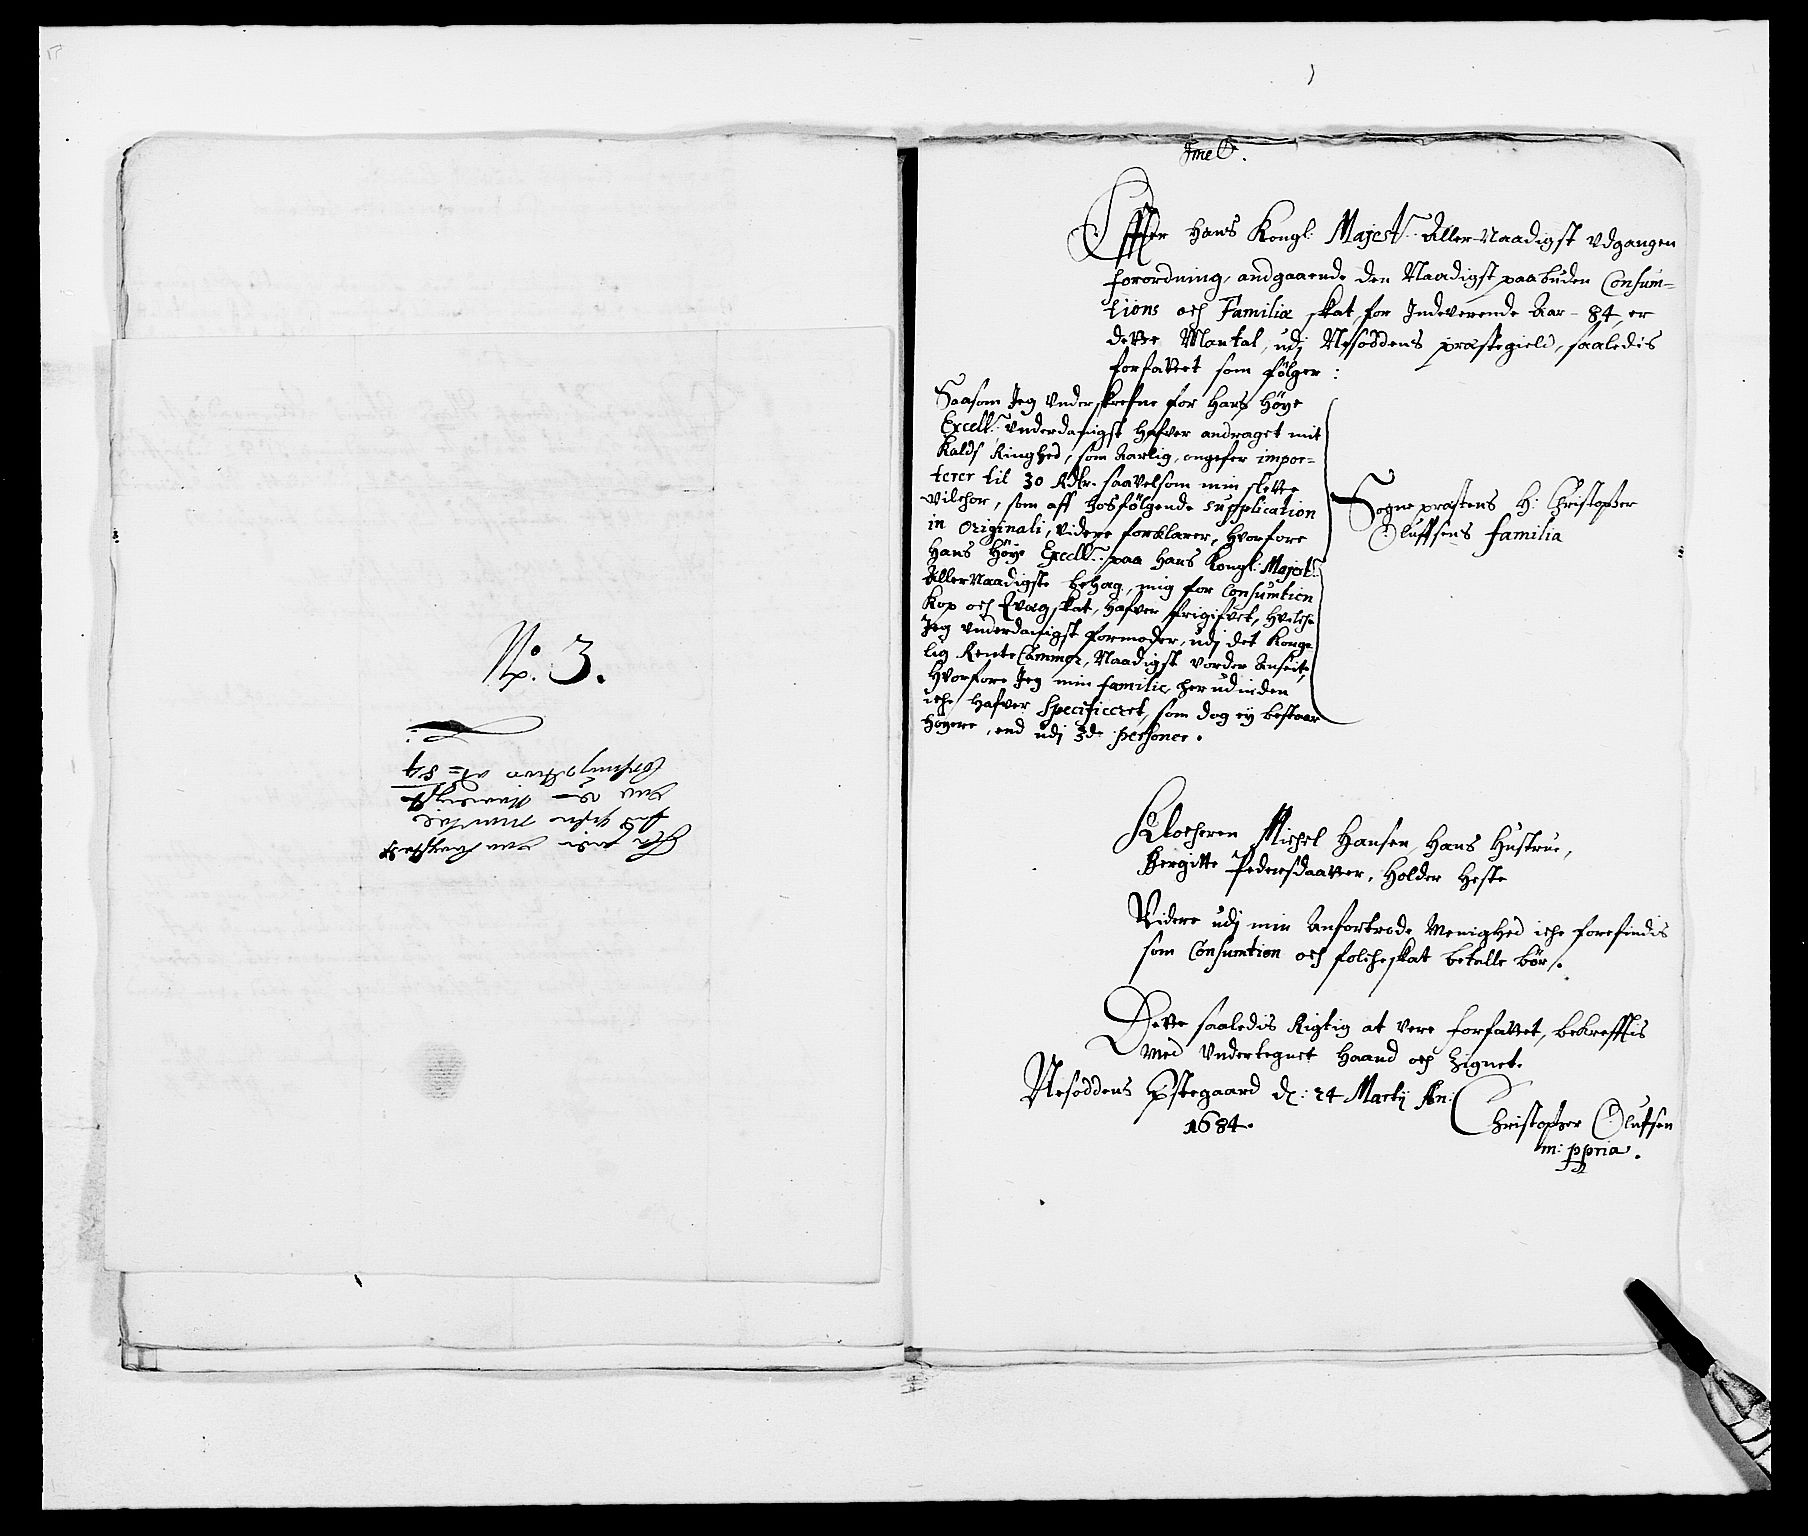 No. 3.
Effter Hans Kongl: Majestz. Aller-Naadigst Udgangen
forordning, andgaaende den Naadigst paabuden Consum-
tions och Familiæ skat, for Indeverende Aar - 84, er
dette Mantal, udj Nesoddens præstegield, saaledis
forfattet som følger :
Saasom Jeg Underskrefne for Hans Høye
Excell. Underdanigst Hafver andraget mit
Kalds Ringhed, som Aarlig, ongefer impor-
terer til 30 Rdlr. saavelsom min slette
Vilchor, som aff Hosfølgende supplication
in Originali, Videre forklarer, Hvorfore
Hans Høye Excell. paa Hans Kongl: Majestz.
AllerNaadigste behag, mig for Consumtion
Kop och Qvæg skat, Hafver frigifvet, Hvilche
Jeg Underdanigst formoder, udj det Konge
lig Rente Cammer, Naadigst vorder Anseet,
Hvorfore Jeg min familie, her udinden
iche Hafver Specificeret, som dog ey bestaar
Høyere, end udj 3de personer.
Sognepræstens H: Christopher
Oluffsens familia
Klocheren Michel Hansen, Hans Hustrue,
Birgitte Pedersdaatter, Holder Heste
Videre udj min Anfortrode Menighed iche forefindis
som Consumtion och folcheskat betalle bør.
Dette saaledis Rigtig at vere forfattet, bekrefftis
Med Undertegnet Haand och Zignet.
Nesoddens Pstegaard d: 24 Martij An:
1684.
Christopher Olufsen
m: ppria.